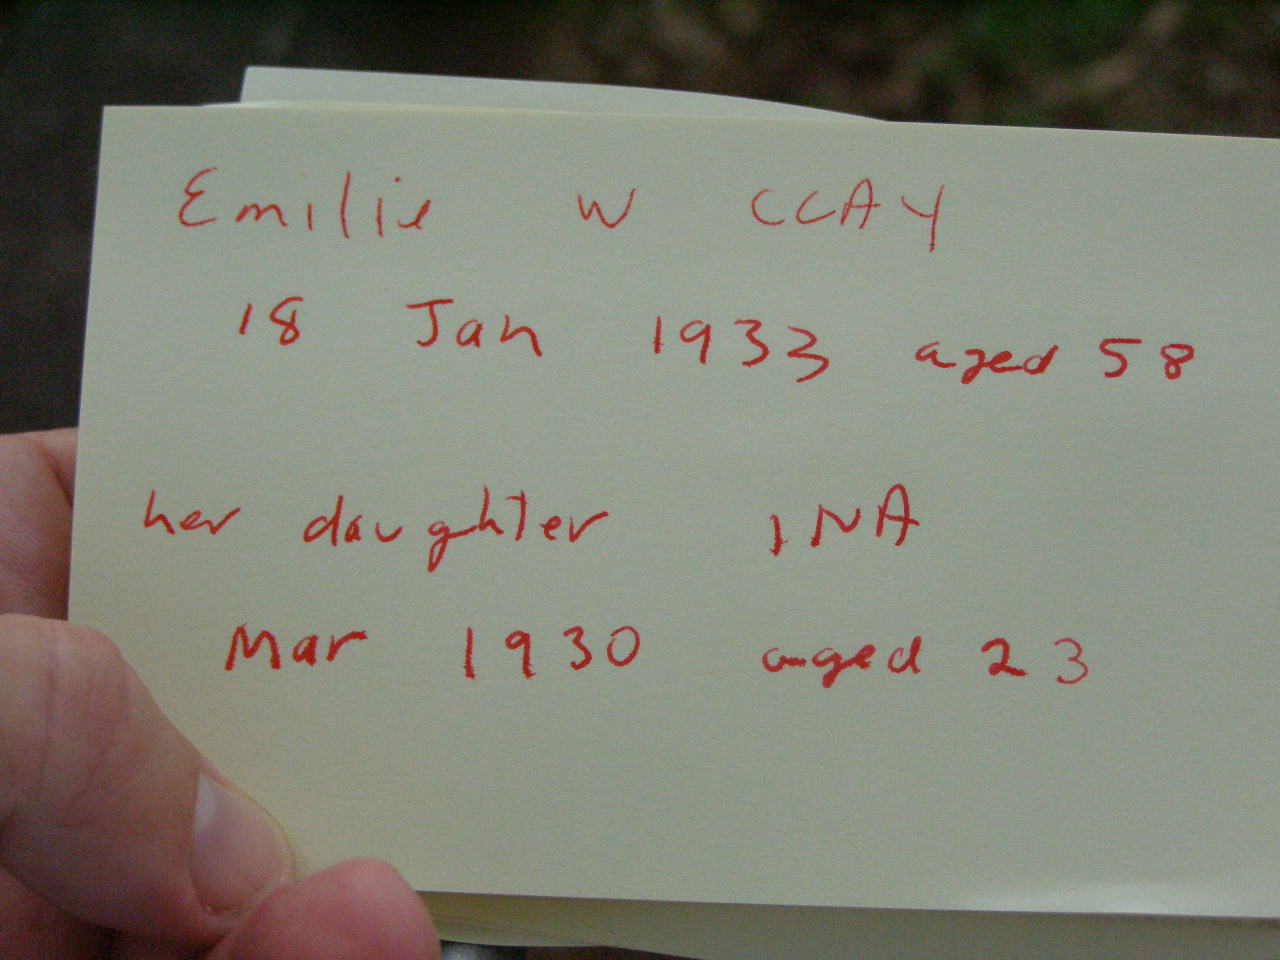 Emilie W CCAY
18 Jan 1933 aged 58
her daughter INA
Mar 1930 aged 23